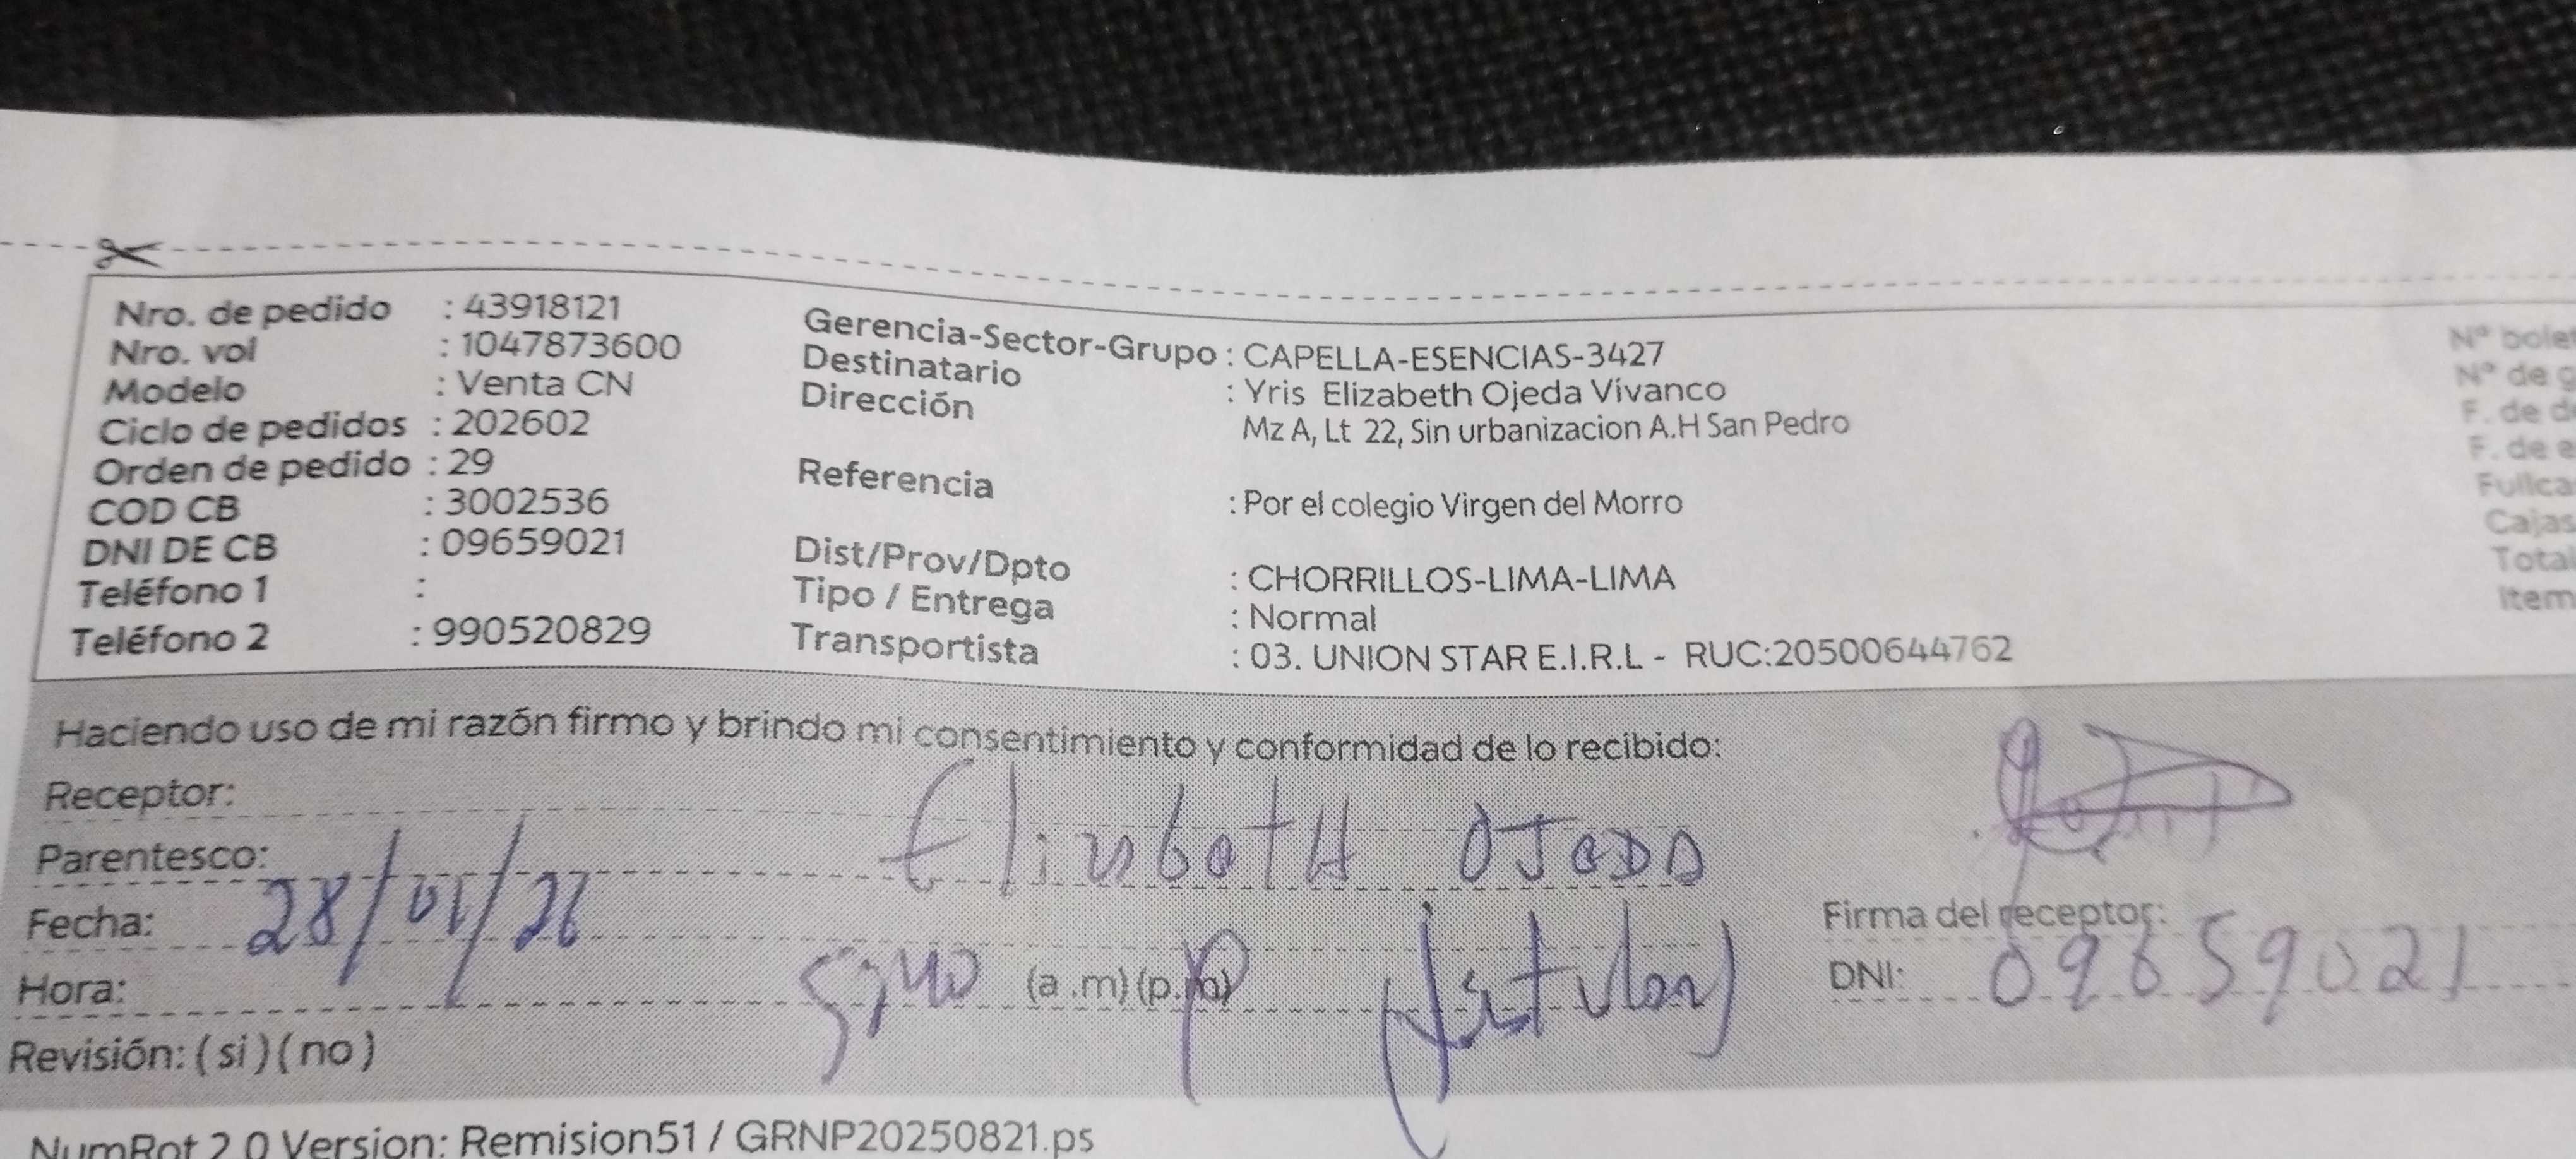 Nro. de pedido : 43918121
Nro. vol : 1047873600
Modelo : Venta CN
Ciclo de pedidos : 202602
Orden de pedido : 29
COD CB : 3002536
DNI DE CB : 09659021
Teléfono 1 :
Teléfono 2 : 990520829
Gerencia-Sector-Grupo : CAPELLA-ESENCIAS-3427
Destinatario : Yris Elizabeth Ojeda Vivanco
Dirección Mz A, Lt 22, Sin urbanizacion A.H San Pedro
Referencia : Por el colegio Virgen del Morro
Dist/Prov/Dpto : CHORRILLOS-LIMA-LIMA
Tipo / Entrega : Normal
Transportista : 03. UNION STAR E.I.R.L - RUC:20500644762
Nº bolet
Nº de g
F. de d
F. de e
Fullca
Cajas
Total
Item
Haciendo uso de mi razón firmo y brindo mi consentimiento y conformidad de lo recibido:
Receptor:
Parentesco: Elizabeth OJeDA
Fecha: 28/01/26
Firma del receptor:
Hora: (a .m) (p.m)
DNI: 09659021
Revisión: ( si ) ( no )
NumRot 2.0 Version: Remision51 / GRNP20250821.ps